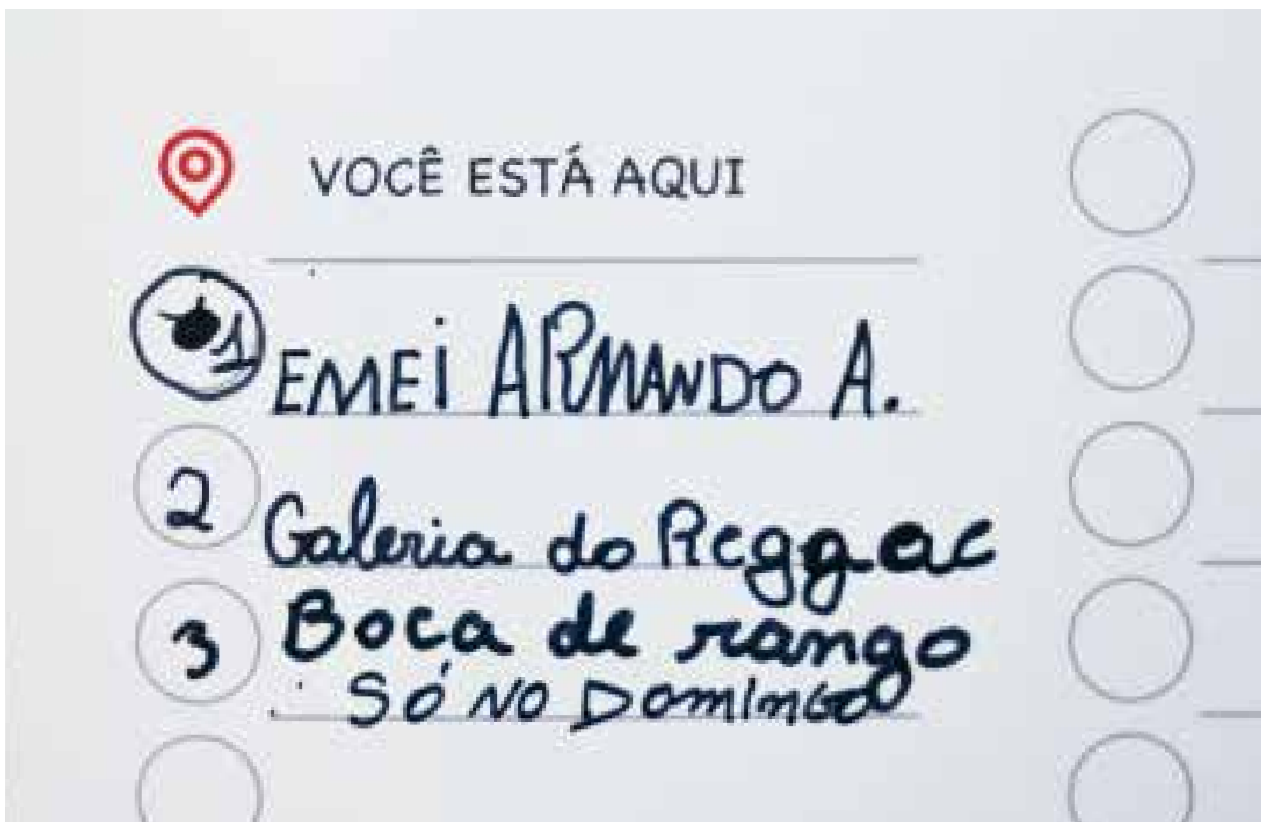 VOCÊ ESTÁ AQUI
1 EMEI ARMANDO A.
2 Galeria do Reggae
3 Boca de rango
SÓ NO DOMINGO